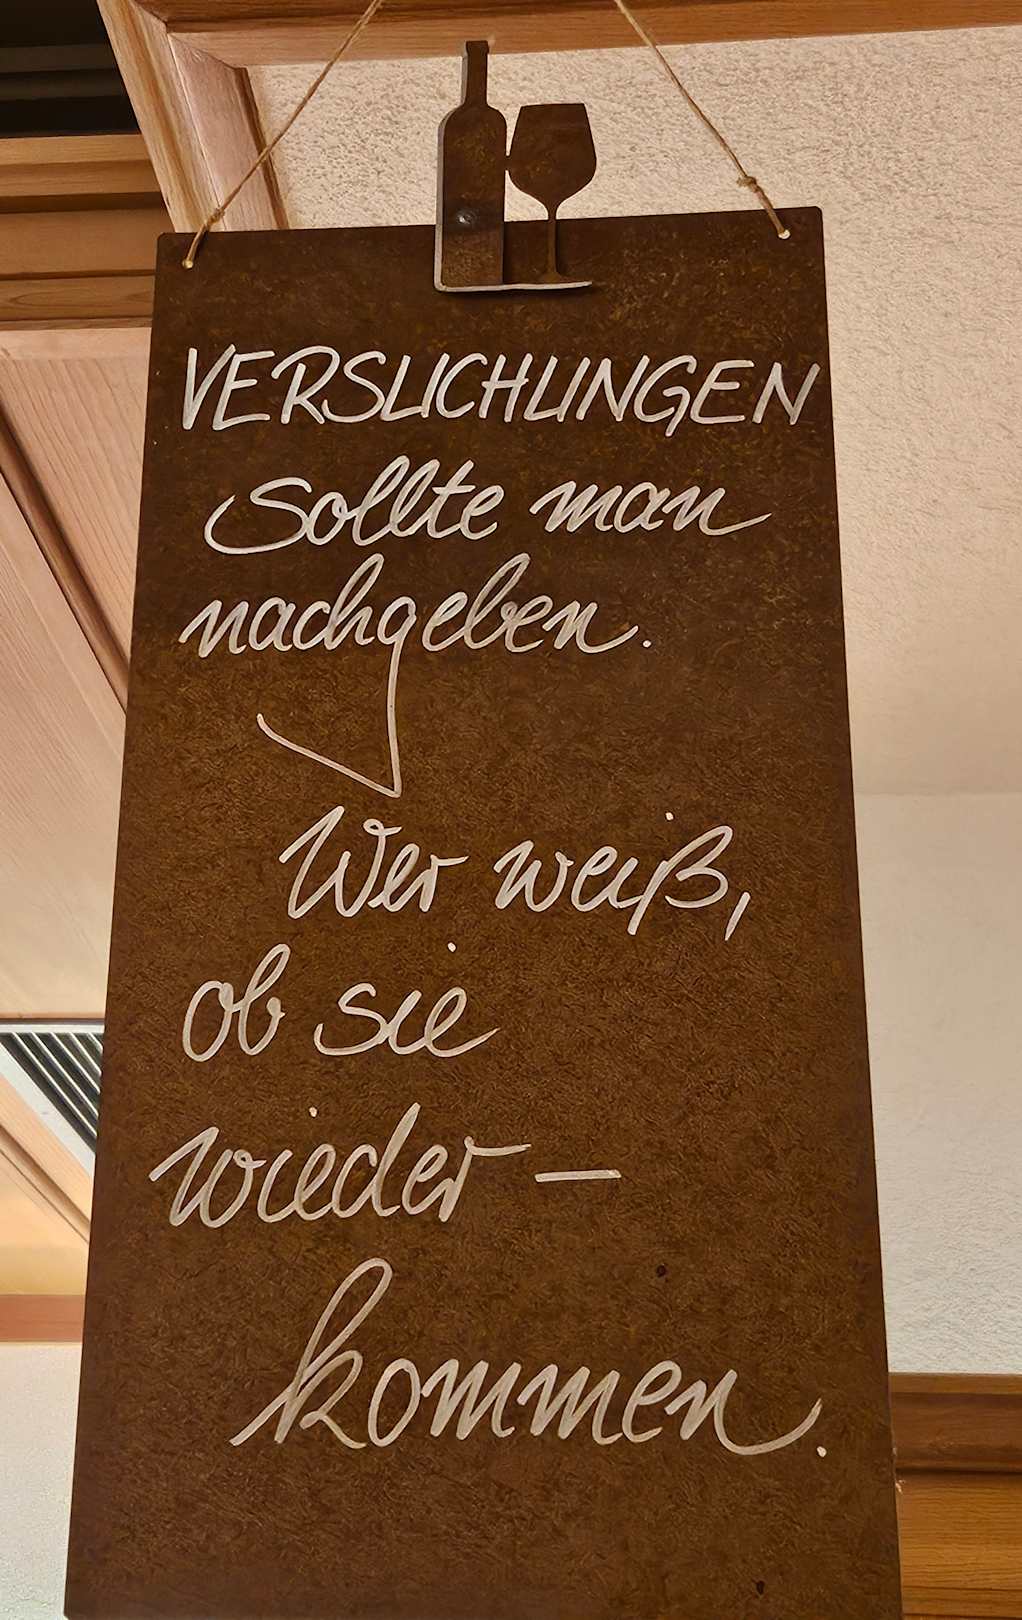 VERSUCHUNGEN
sollte man
nachgeben.
Wer weiß,
ob sie
wieder –
kommen.